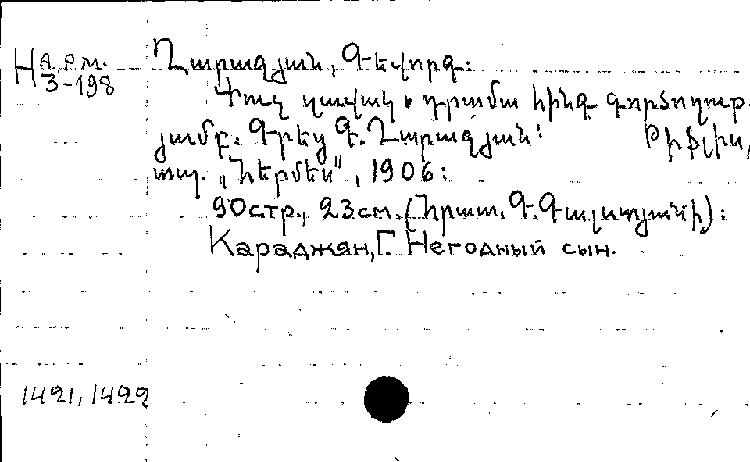 Н Арм. 3-198
Ղարաջյան, Գևորգ:
Վուշ զավակ. դրամա հինգ գործողութ
յամբ. Գրեց Գ. Ղարաջյան: Թիֆլիս,
տպ. „Հերմես", 1906:
90стр., 23см. (Հրատ. Գ. Գալստյանի):
Караджян, Г. Негодный сын.
1421, 1422